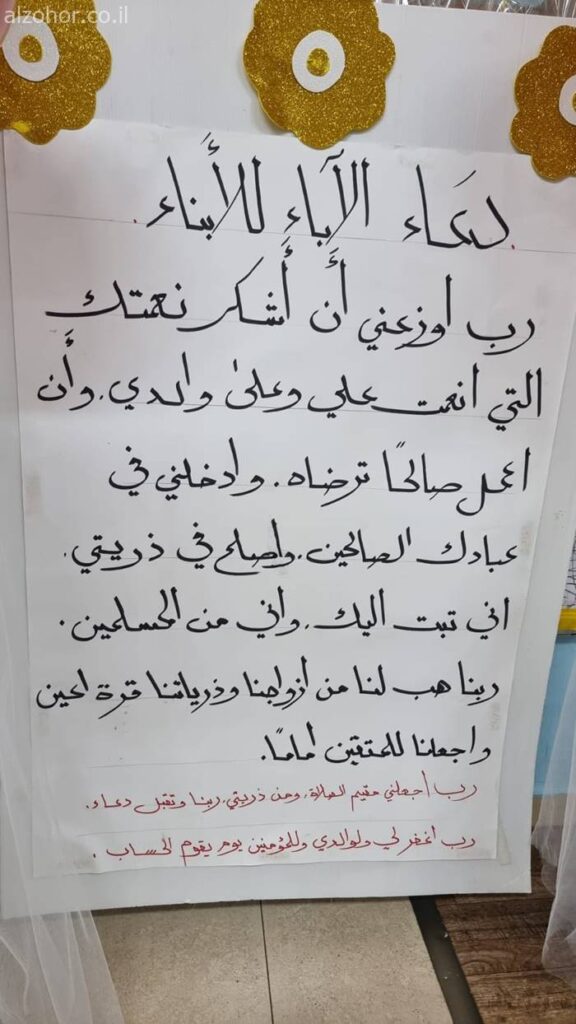 alzohor.co.il
دعَاء الآباءِ للأَبناء.
رب اوزعني أَن أَشكر نعمتك
التي انعمت علي وعلىٰ والدي، وأَن
اعمل صالحًا ترضاه. وادخلني في
عبادك الصالحين، واصلح في ذريتي.
اني تبت اليك، واني من المسلمين.
ربنا هب لنا من أزواجنا وذرياتنا قرة اعين
واجعلنا للمتقين امامًا.
رب اجعلني مقيم الصلاة، ومن ذريتي، ربنا وتقبل دعاء.
رب اغفر لي ولوالدي وللمؤمنين يوم يقوم الحساب.